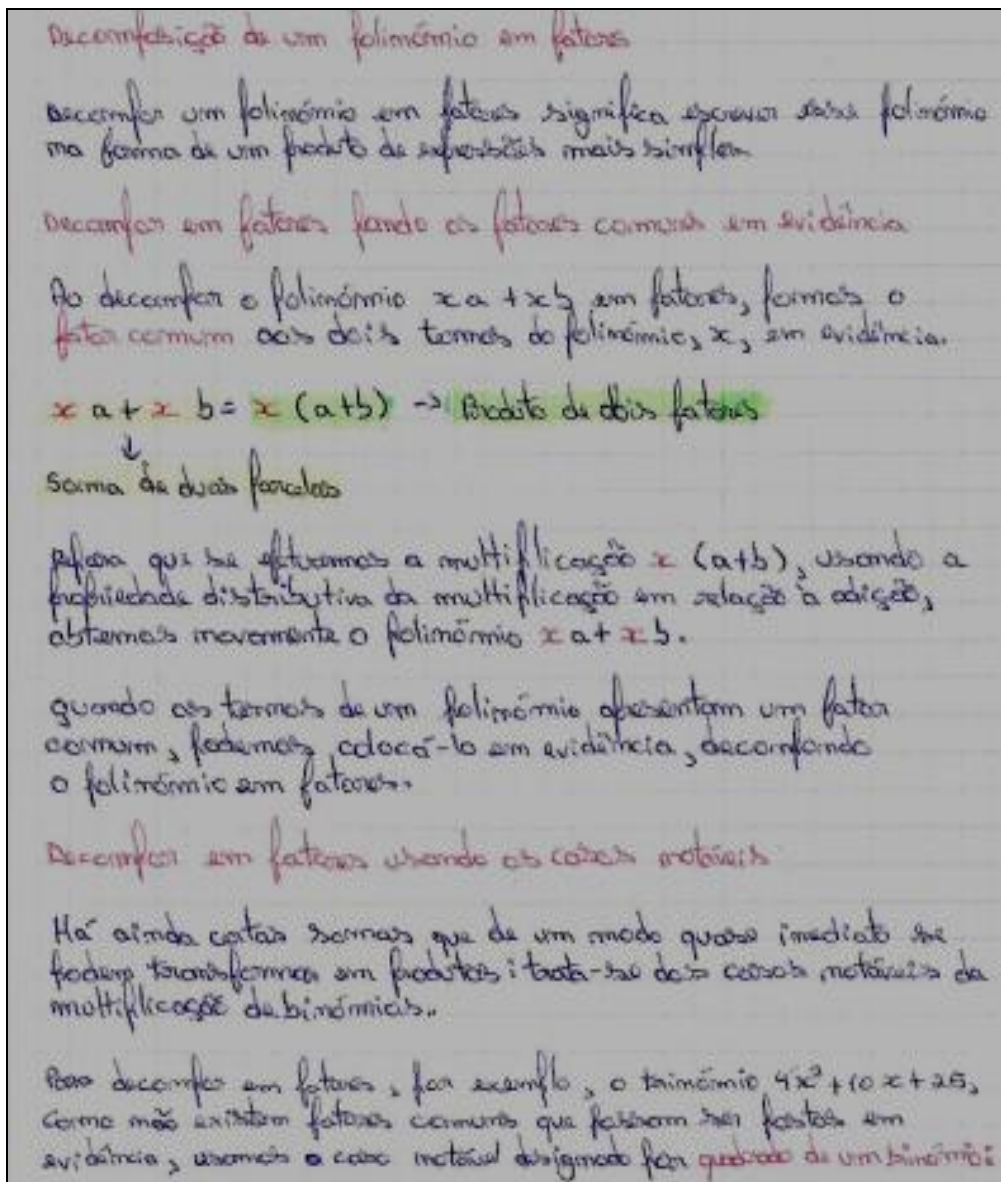 Decomposição de um polinómio em fatores
Decompor um polinómio em fatores significa escrever esse polinómio
na forma de um produto de expressões mais simples.
Decompor em fatores pondo os fatores comuns em evidência
Ao decompor o polinómio xa + xb em fatores, pomos o
fator comum aos dois termos do polinómio, x, em evidência.
x a + x b = x (a+b) -> Produto de dois fatores
↓
Soma de duas parcelas
Repara que se efetuarmos a multiplicação x (a+b), usando a
propriedade distributiva da multiplicação em relação à adição,
obtemos novamente o polinómio x a + x b.
quando os termos de um polinómio apresentam um fator
comum, podemos colocá-lo em evidência, decompondo
o polinómio em fatores.
Decompor em fatores usando os casos notáveis
Há ainda certas somas que de um modo quase imediato se
podem transformar em produtos: trata-se dos casos notáveis da
multiplicação de binómios.
Para decompor em fatores, por exemplo, o trinómio 4x² + 10x + 25,
como não existem fatores comuns que possam ser postos em
evidência, usamos o caso notável designado por quadrado de um binómio: